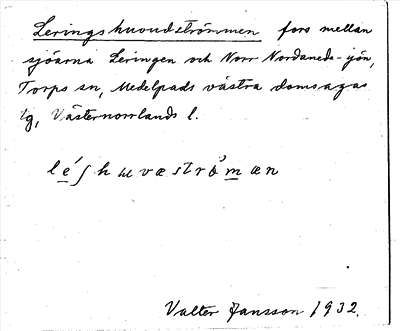 Leringshuvudströmmen fors mellan
sjöarna Leringen och Norr Nordanede-sjön,
Torps sn, Medelpads västra domsagas
tg, Västernorrlands l.
Valter Jansson 1932.